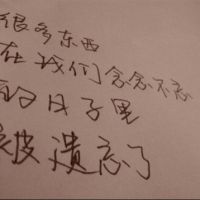 很多东西
在我们念念不忘
的日子里
被遗忘了